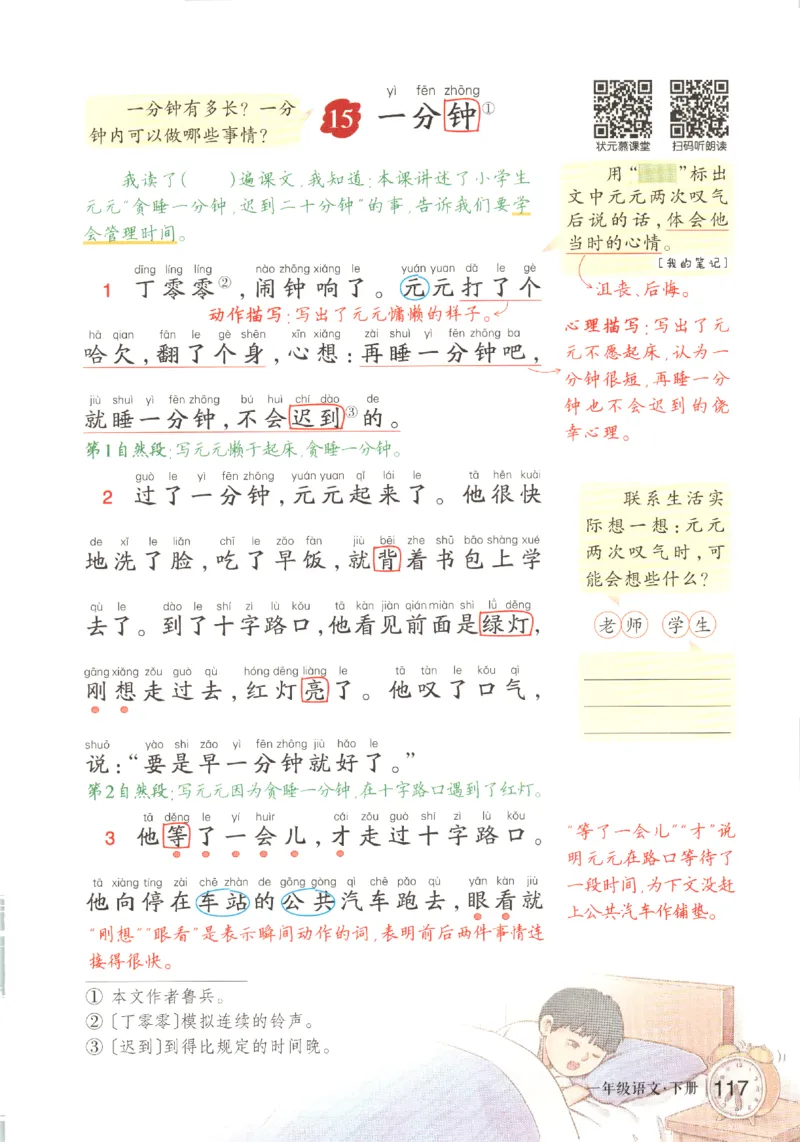 yì fēn zhōng
一分钟有多长？一分
钟内可以做哪些事情？
15 一分钟①
状元慕课堂 扫码听朗读
我读了( )遍课文，我知道：本课讲述了小学生
元元“贪睡一分钟，迟到二十分钟”的事，告诉我们要学
会管理时间。
用“ ”标出
文中元元两次叹气
后说的话，体会他
当时的心情。
[我的笔记]
沮丧、后悔。
dīng líng líng nào zhōng xiǎng le yuán yuan dǎ le gè
1 丁零零②，闹钟响了。元元打了个
动作描写：写出了元元慵懒的样子。
hā qian fān le gè shēn xīn xiǎng zài shuì yì fēn zhōng ba
哈欠，翻了个身，心想：再睡一分钟吧，
jiù shuì yì fēn zhōng bú huì chí dào de
就睡一分钟，不会迟到③的。
第1自然段：写元元懒于起床，贪睡一分钟。
心理描写：写出了元
元不愿起床，认为一
分钟很短，再睡一分
钟也不会迟到的侥
幸心理。
guò le yì fēn zhōng yuán yuan qǐ lái le tā hěn kuài
2 过了一分钟，元元起来了。他很快
de xǐ le liǎn chī le zǎo fàn jiù bēi zhe shū bāo shàng xué
地洗了脸，吃了早饭，就背着书包上学
qù le dào le shí zì lù kǒu tā kàn jiàn qián miàn shì lǜ dēng
去了。到了十字路口，他看见前面是绿灯，
gāng xiǎng zǒu guò qù hóng dēng liàng le tā tàn le kǒu qì
刚想走过去，红灯亮了。他叹了口气，
shuō yào shi zǎo yì fēn zhōng jiù hǎo le
说：“要是早一分钟就好了。”
第2自然段：写元元因为贪睡一分钟，在十字路口遇到了红灯。
联系生活实
际想一想：元元
两次叹气时，可
能会想些什么？
老师 学生
tā děng le yí huìr cái zǒu guò shí zì lù kǒu
3 他等了一会儿，才走过十字路口。
tā xiàng tíng zài chē zhàn de gōng gòng qì chē pǎo qù yǎn kàn jiù
他向停在车站的公共汽车跑去，眼看就
“刚想”“眼看”是表示瞬间动作的词，表明前后两件事情连
接得很快。
“等了一会儿”“才”说
明元元在路口等待了
一段时间，为下文没赶
上公共汽车作铺垫。
① 本文作者鲁兵。
② 〔丁零零〕模拟连续的铃声。
③ 〔迟到〕到得比规定的时间晚。
一年级语文·下册 117